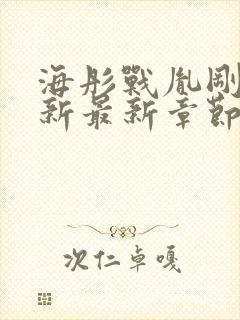 海彤戰胤剛
新最新章節
次仁卓嘎